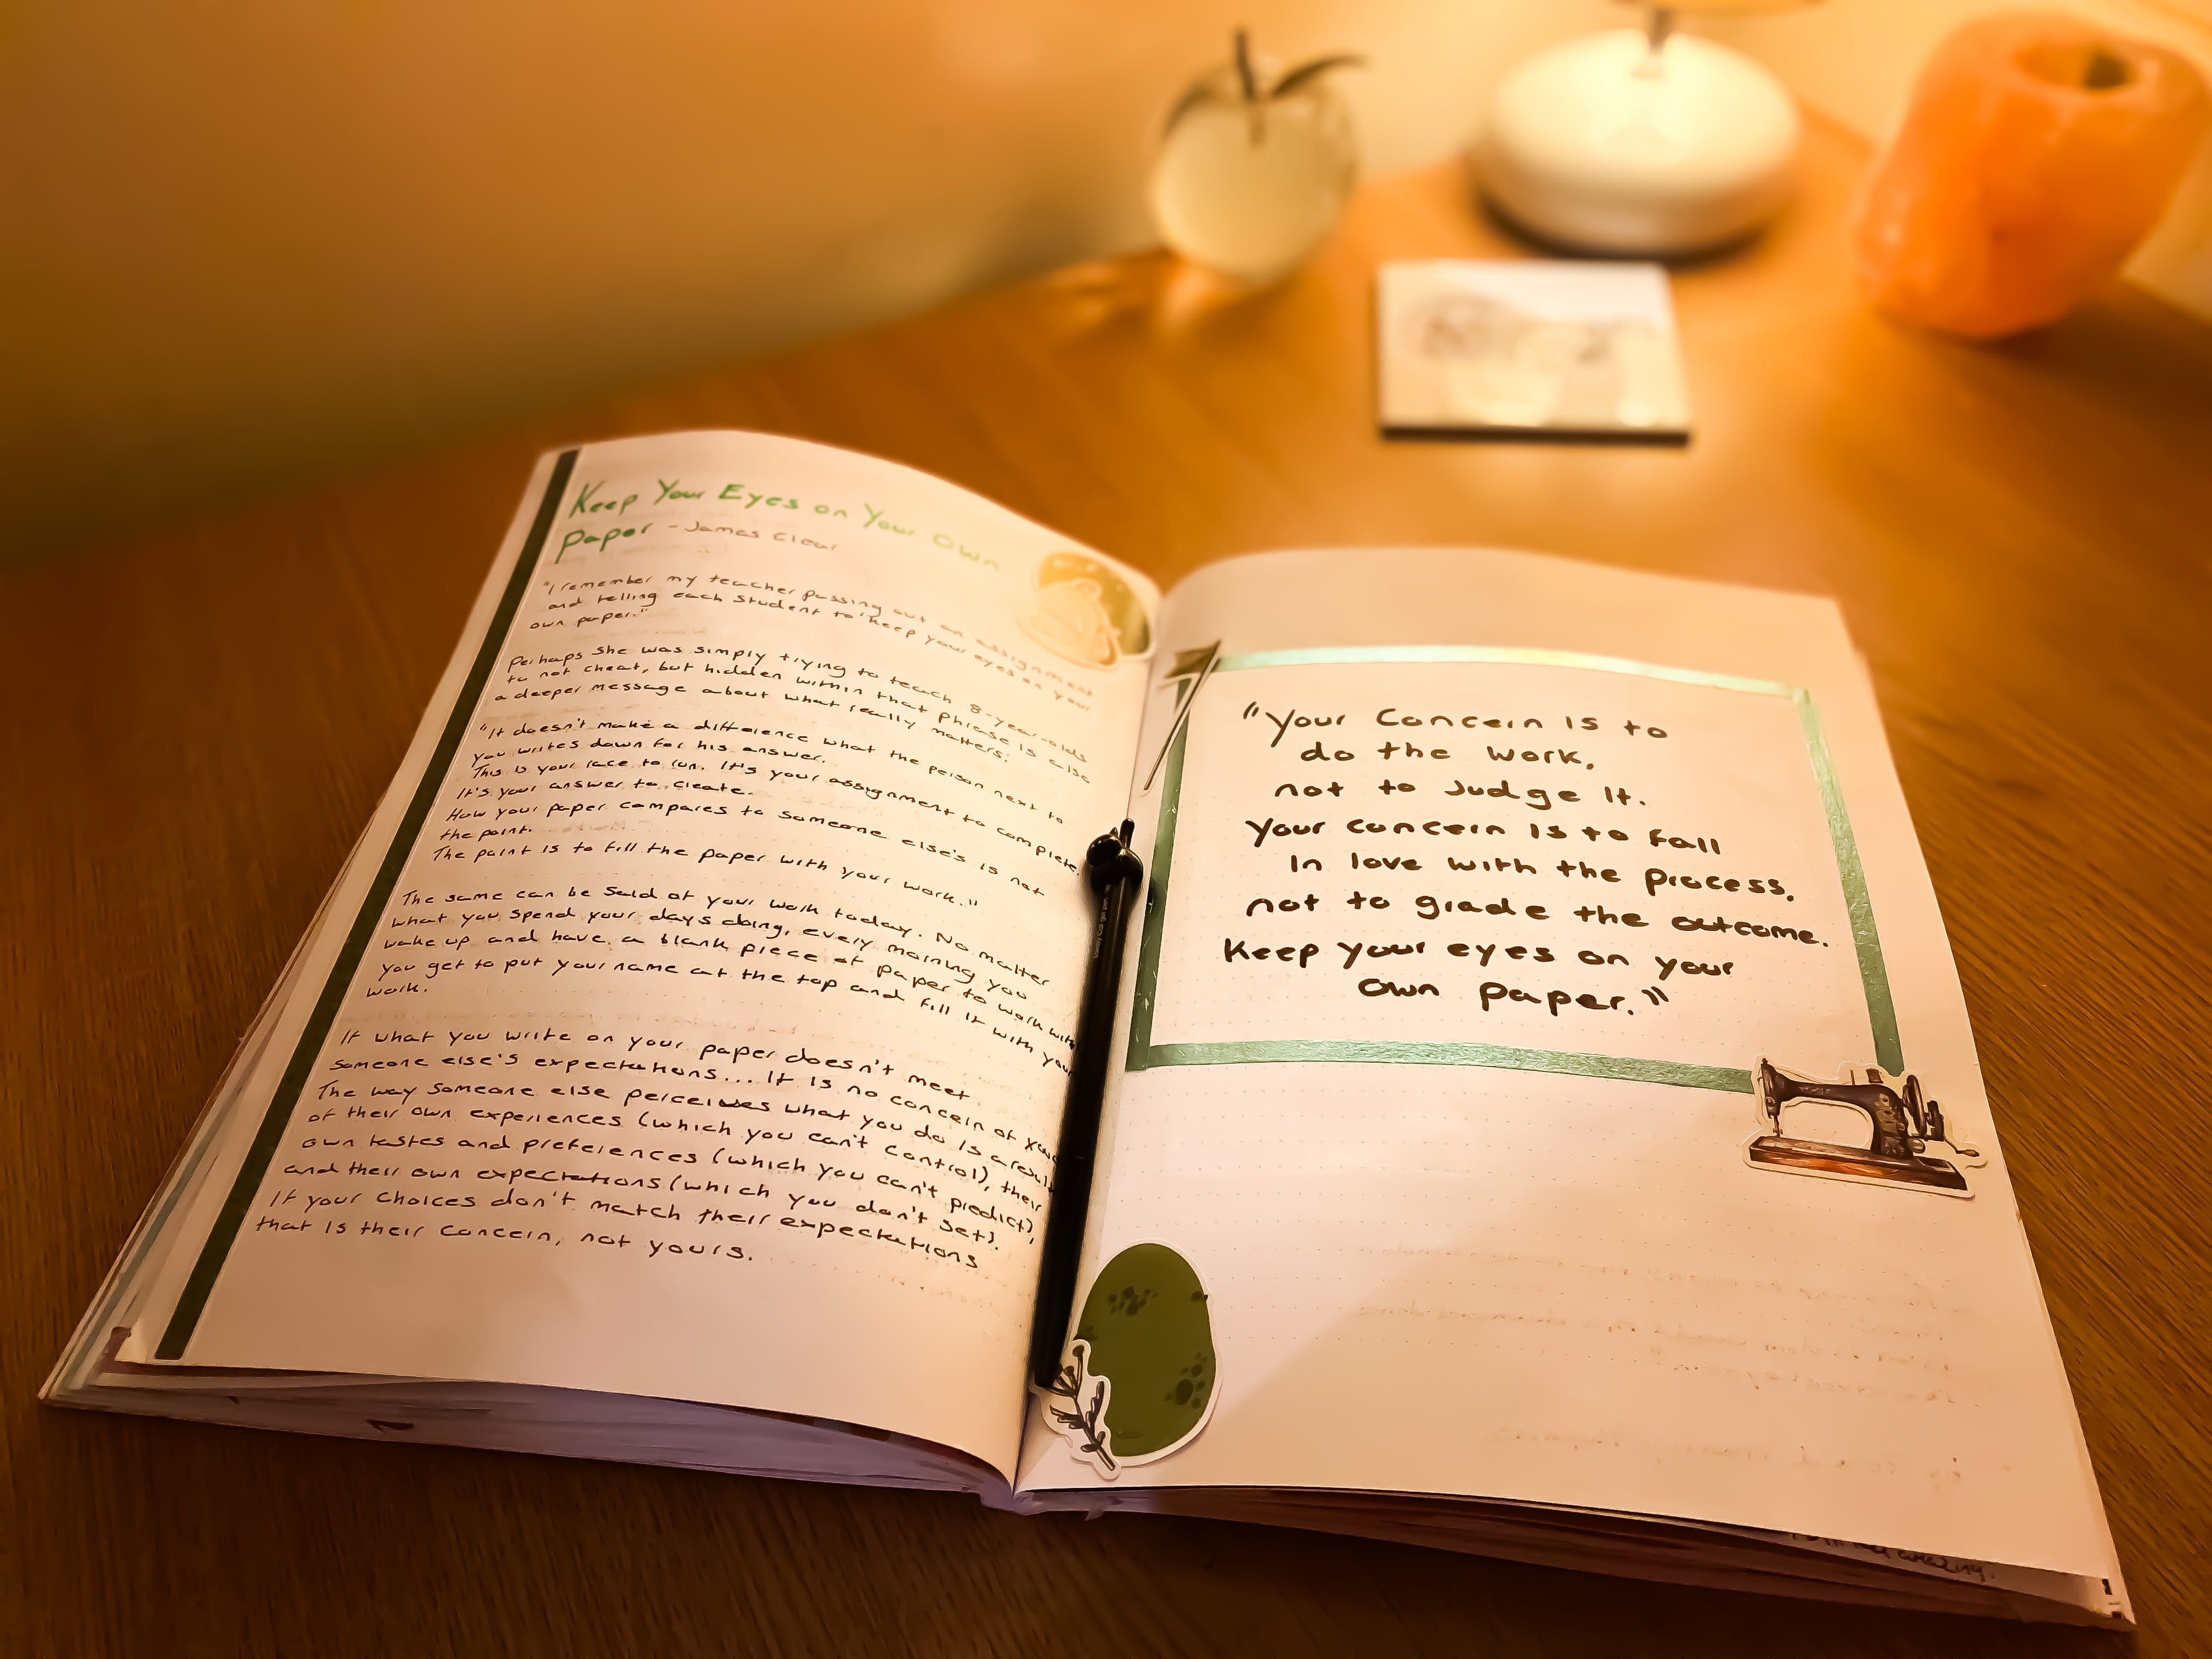 Keep Your Eyes on Your Own
Paper - James Clear
"I remember my teacher passing out an assignment
and telling each student to 'keep your eyes on your
own paper."
Perhaps she was simply trying to teach 8-year-olds
to not cheat, but hidden within that phrase is also
a deeper message about what really matters:
"It doesn't make a difference what the person next to
you writes down for his answer.
This is your race to run. It's your assignment to complete.
It's your answer to create.
How your paper compares to someone else's is not
the point.
The point is to fill the paper with your work."
The same can be said of your work today. No matter
what you spend your days doing, every morning you
wake up and have a blank piece of paper to work with
you get to put your name at the top and fill it with your
work.
If what you write on your paper doesn't meet
someone else's expectations... It is no concern of yours
The way someone else perceives what you do is a result
of their own experiences (which you can't control), their
own tastes and preferences (which you can't predict),
and their own expectations (which you don't set).
If your choices don't match their expectations
that is their concern, not yours.
"Your concern is to
do the work,
not to Judge It.
Your concern is to fall
In love with the process,
not to grade the outcome.
Keep your eyes on your
own paper."